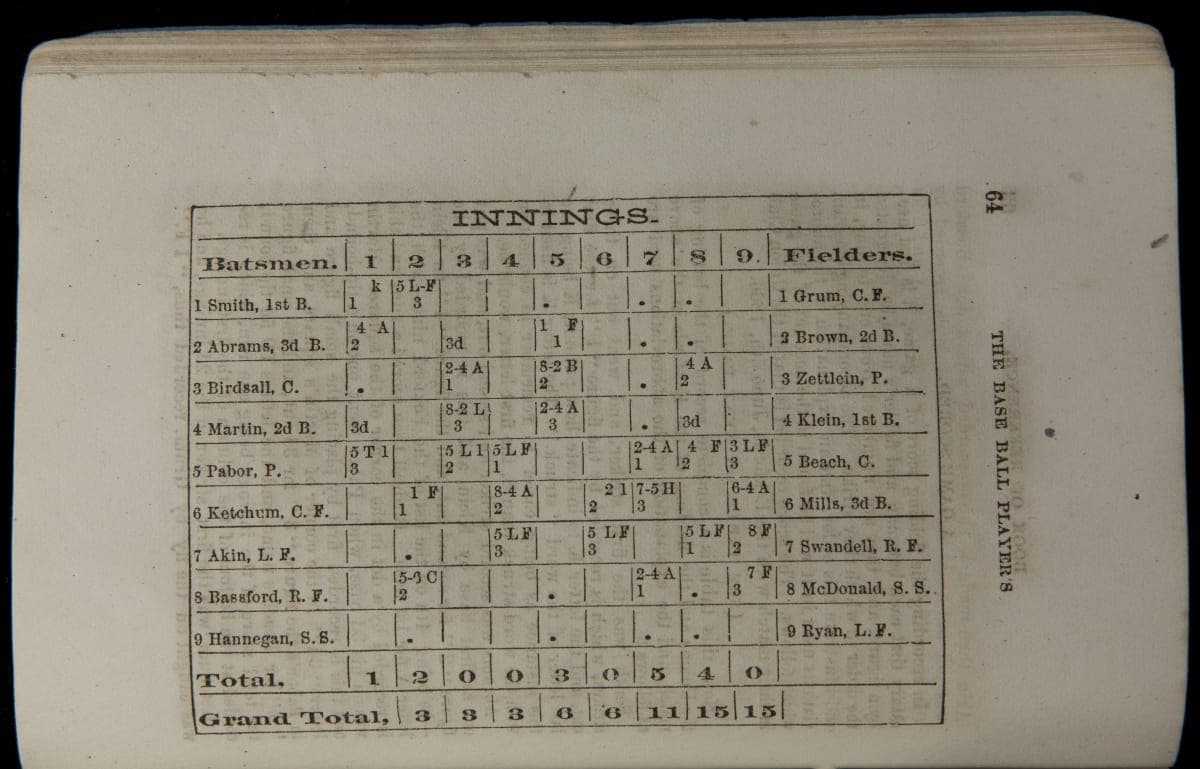 INNINGS.
Batsmen. 1 2 3 4 5 6 7 8 9. Fielders.
k 5 L-F
1 Smith, 1st B. 1 3 . . . 1 Grum, C. F.
4 A 1 F
2 Abrams, 3d B. 2 3d 1 . . 2 Brown, 2d B.
2-4 A 8-2 B 4 A
3 Birdsall, C. . 1 2 . 2 3 Zettlein, P.
8-2 L 2-4 A
4 Martin, 2d B. 3d 3 3 . 3d 4 Klein, 1st B.
5 T 1 5 L 1 5 L F 2-4 A 4 F 3 L F
5 Pabor, P. 3 2 1 1 2 3 5 Beach, C.
1 F 8-4 A 2 1 7-5 H 6-4 A
6 Ketchum, C. F. 1 2 2 3 1 6 Mills, 3d B.
5 L F 5 L F 5 L F 8 F
7 Akin, L. F. . 3 3 1 2 7 Swandell, R. F.
C 2-4 A 7 F
8 Bassford, R. F. 2 . 1 . 3 8 McDonald, S. S.
9 Hannegan, S. S. . . . . 9 Ryan, L. F.
Total, 1 2 0 0 3 0 5 4 0
Grand Total, 3 3 3 6 6 11 15 15
64 THE BASE BALL PLAYER'S